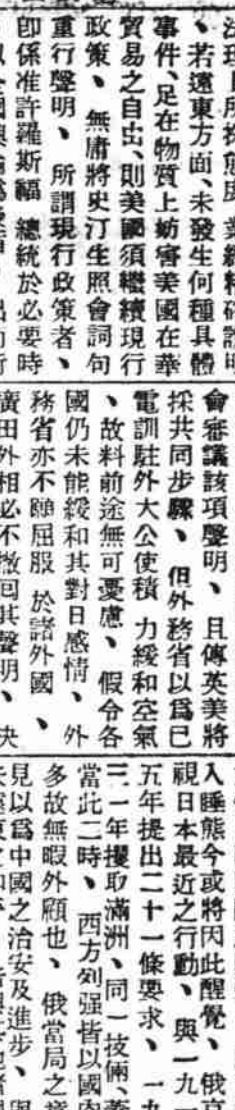 、若遠東方面、未發生何種具體
事件、足在物質上妨害美國在華
貿易之自由、則美國須繼續現行
政策、無庸將史汀生照會詞句
重行聲明、所謂現行政策者、
卽係准許羅斯福 總統於必要時
會審議該項聲明、且傳英美將
採共同步驟、但外務省以爲已
電訓駐外大公使積 力緩和空氣
、故料前途無可憂慮、假令各
國仍未能緩和其對日感情、外
務省亦不願屈服 於諸外國 、
廣田外相必不撤回其聲明、決
入睡熊今或將因此醒覺、俄京
視日本最近之行動、與一九一
五年提出二十一條要求、一九
三一年攫取滿洲、同一技倆、蓋
當此二時、西方列强皆以國內
多故無暇外顧也、俄當局之意
見以爲中國之治安及進步、與